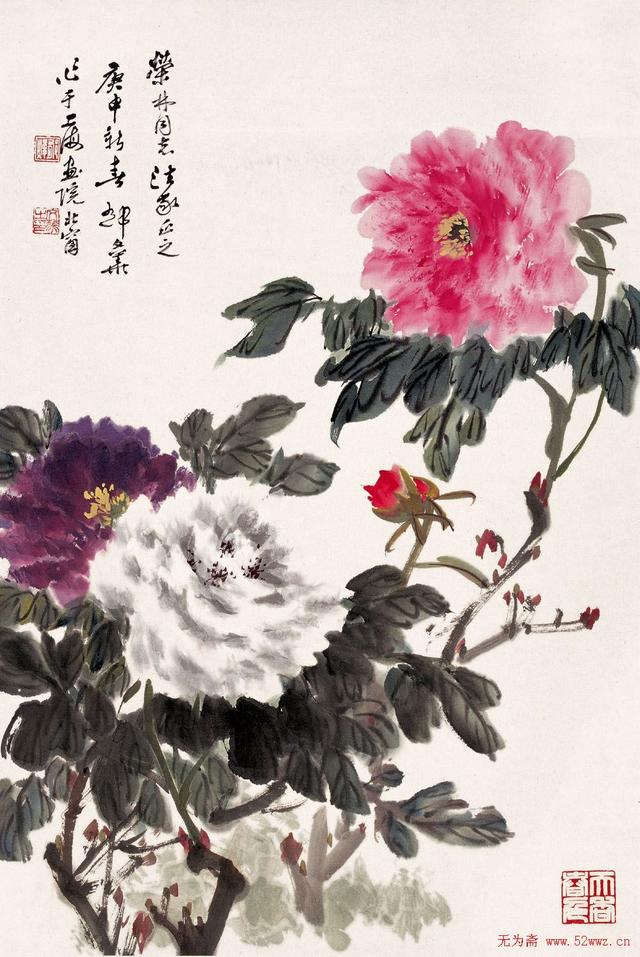 荣林同志法家正之
庚申新春邵文華
作于上海画院北窗
无为斋 www.52wwz.cn